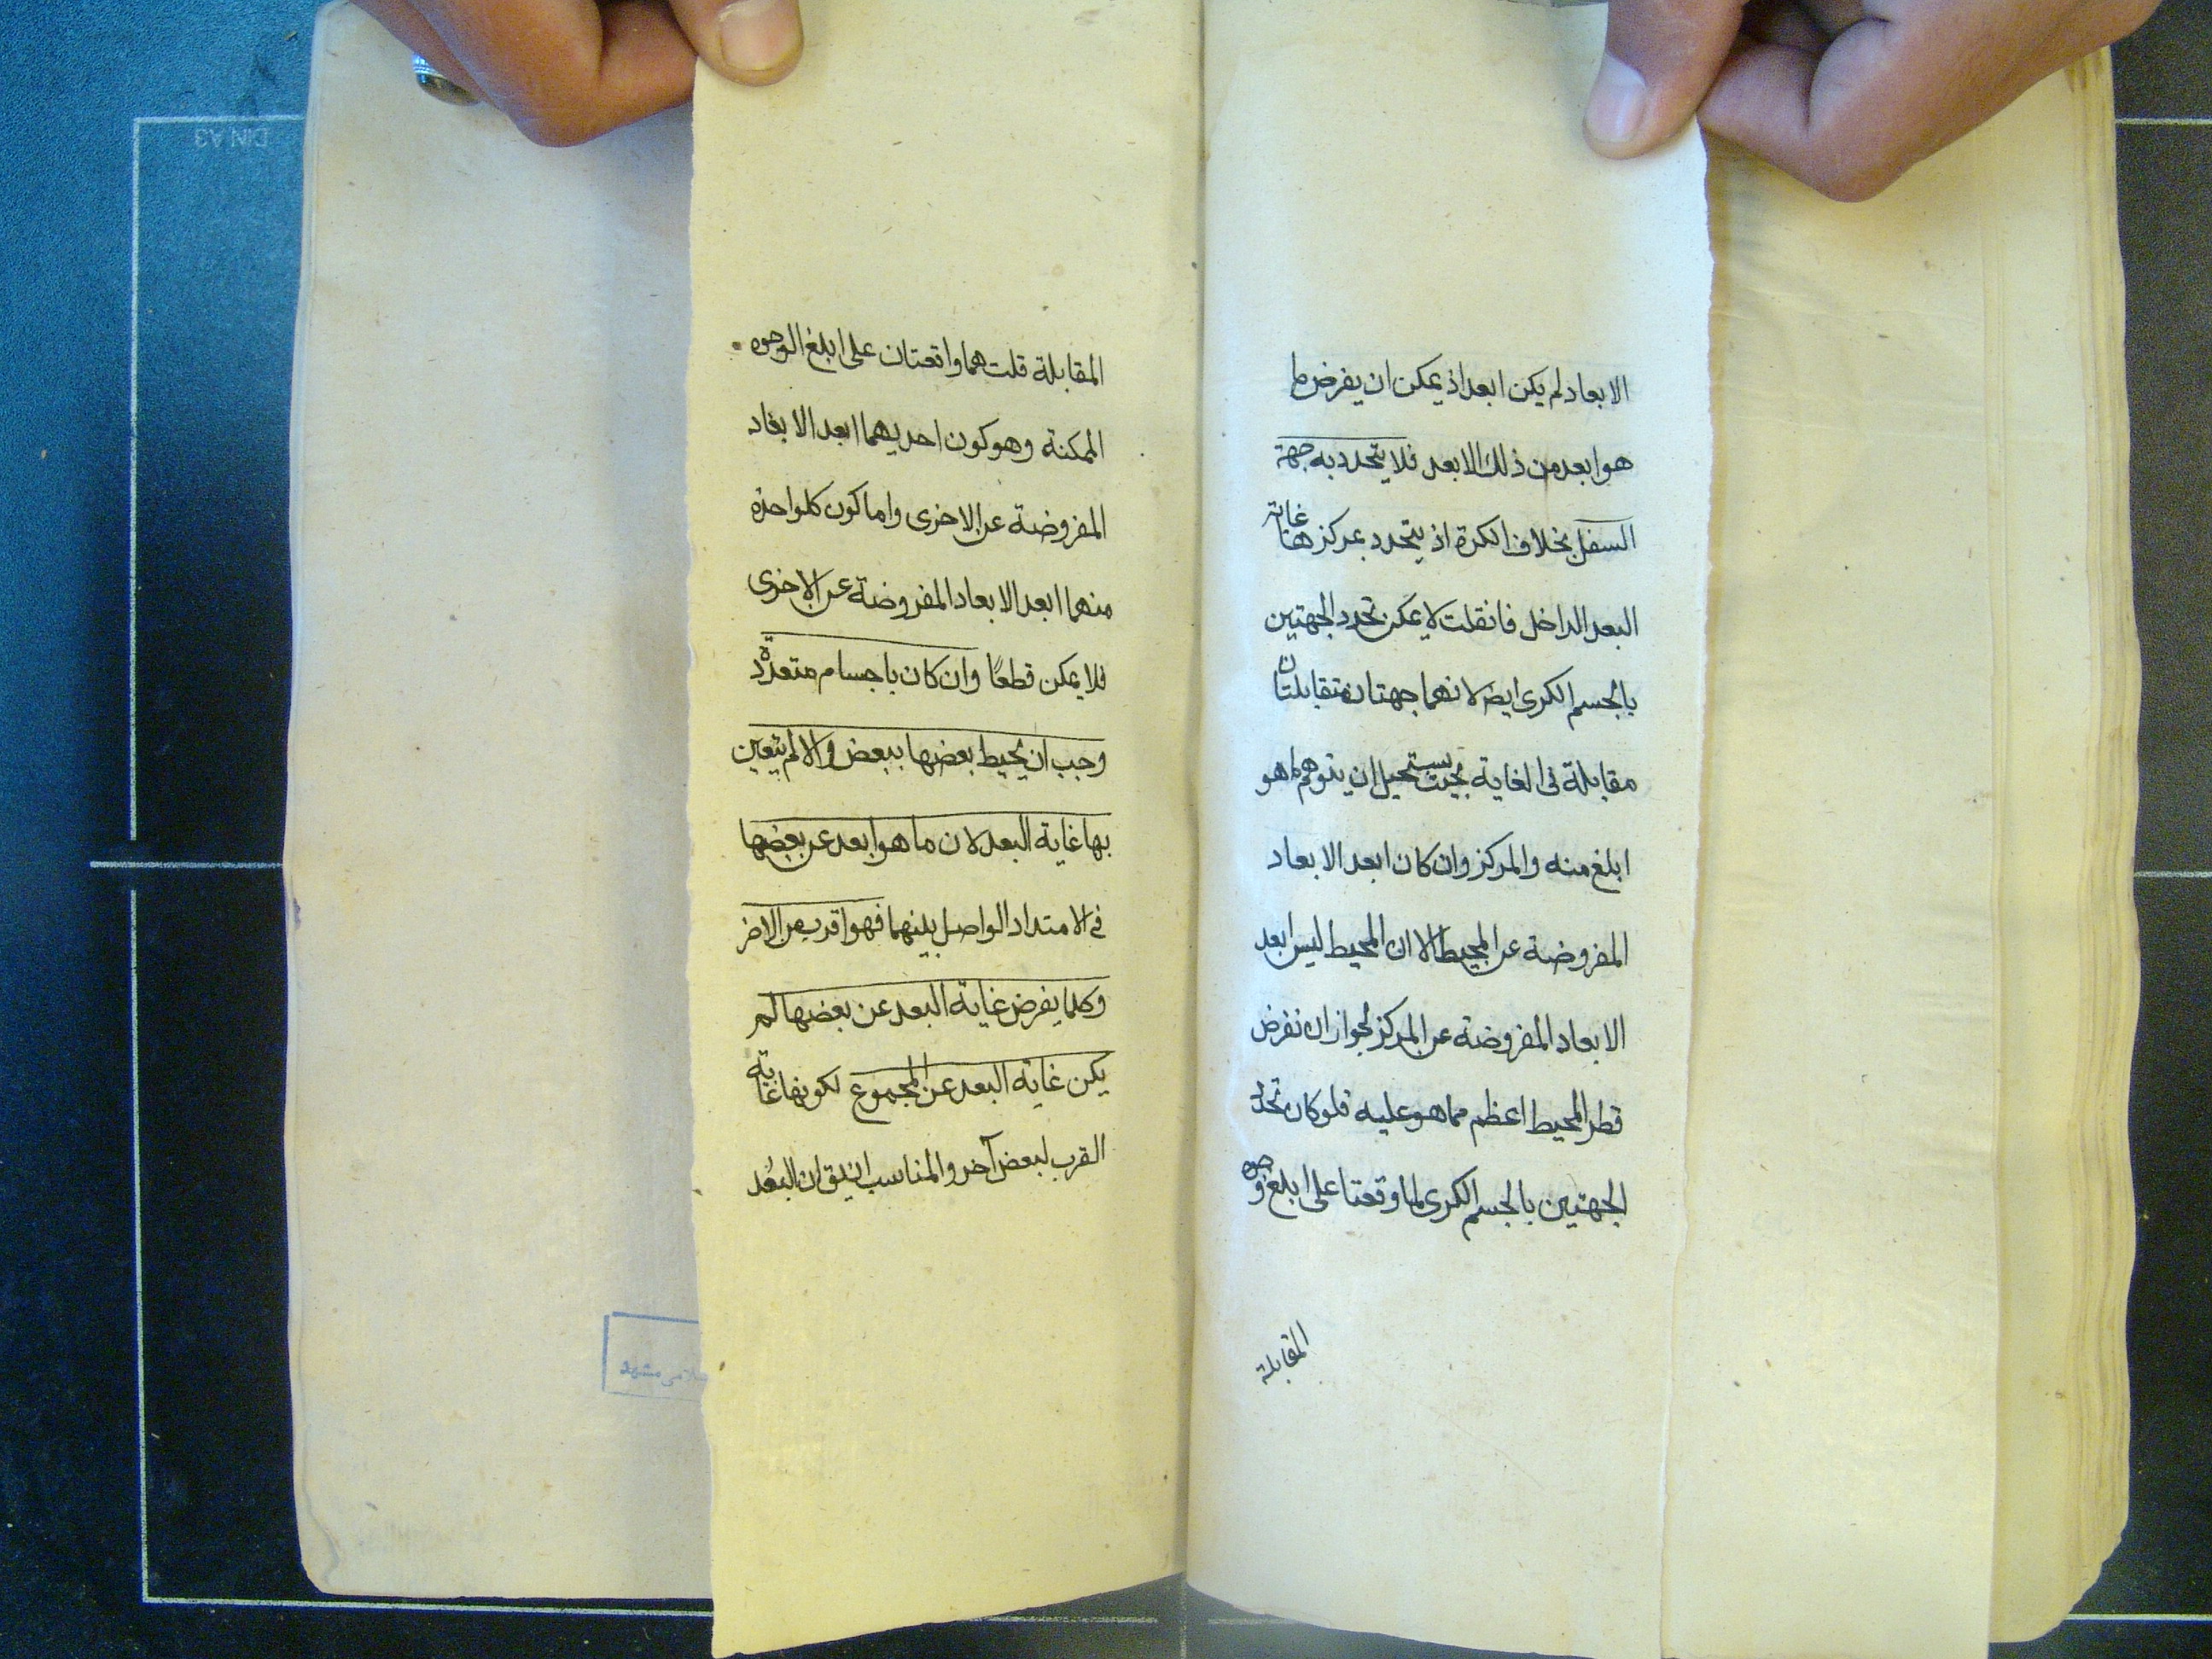 الابعاد لم يكن ابعد اذ يمكن ان يفرض ما
هو ابعد من ذلك الابعد فلا يتحدد به جهة
السفل بخلاف الكرة اذ يتحدد بمركزها غاية
البعد الداخل فان قلت لا يمكن تحدد الجهتين
بالجسم الكرى ايضا لانهما جهتان متقابلتان
مقابلة فى الغاية بحيث يستحيل ان يتوهم ما هو
ابلغ منه والمركز وان كان ابعد الابعاد
المفروضة عن المحيط الا ان المحيط ليس ابعد
الابعاد المفروضة عن المركز لجواز ان نفرض
قطر المحيط اعظم مما هو عليه فلو كان تحدد
الجهتين بالجسم الكرى لما وقعتا على ابلغ وجوه
المقابلة
المقابلة قلت هما واقعتان على ابلغ الوجوه
الممكنة وهو كون احديهما ابعد الابعاد
المفروضة عن الاخرى واما كون كلواحدة
منهما ابعد الابعاد المفروضة عن الاخرى
فلا يمكن قطعًا وان كان باجسام متعددة
وجب ان يحيط بعضها ببعض والا لم يتعين
بها غاية البعد لان ما هو ابعد عن بعضها
فى الامتداد الواصل بينهما فهو اقرب من الاخر
وكلما يفرض غاية البعد عن بعضها لم
يكن غاية البعد عن المجموع لكونها غاية
القرب لبعض آخر والمناسب ان يق ان البُعد
مشهد